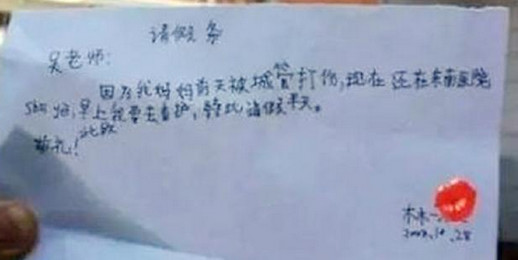 请假条
吴老师:
因为我妈妈前天被城管打伤,现在还在东南医院
早上我要去看护,特此请假半天。
此致
敬礼!
林